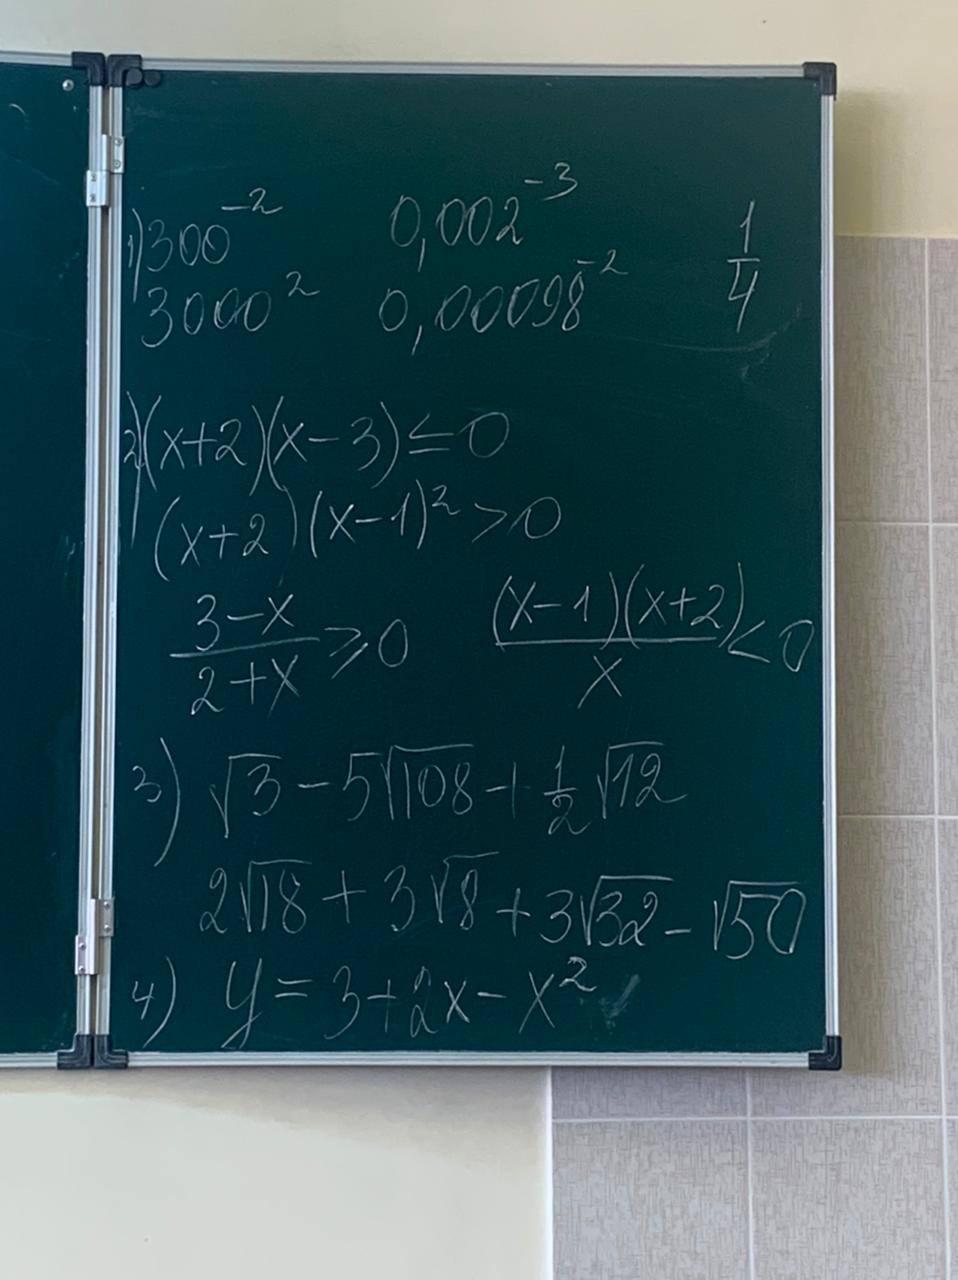 1) 300⁻² 0,002⁻³ 1/4
3000² 0,00098⁻²
2) (x+2)(x-3)≤0
(x+2)(x-1)²>0
(3-x)/(2+x)≥0 ((x-1)(x+2))/x<0
3) √3-5√108+1/2√12
2√18+3√8+3√32-√50
4) y=3+2x-x²